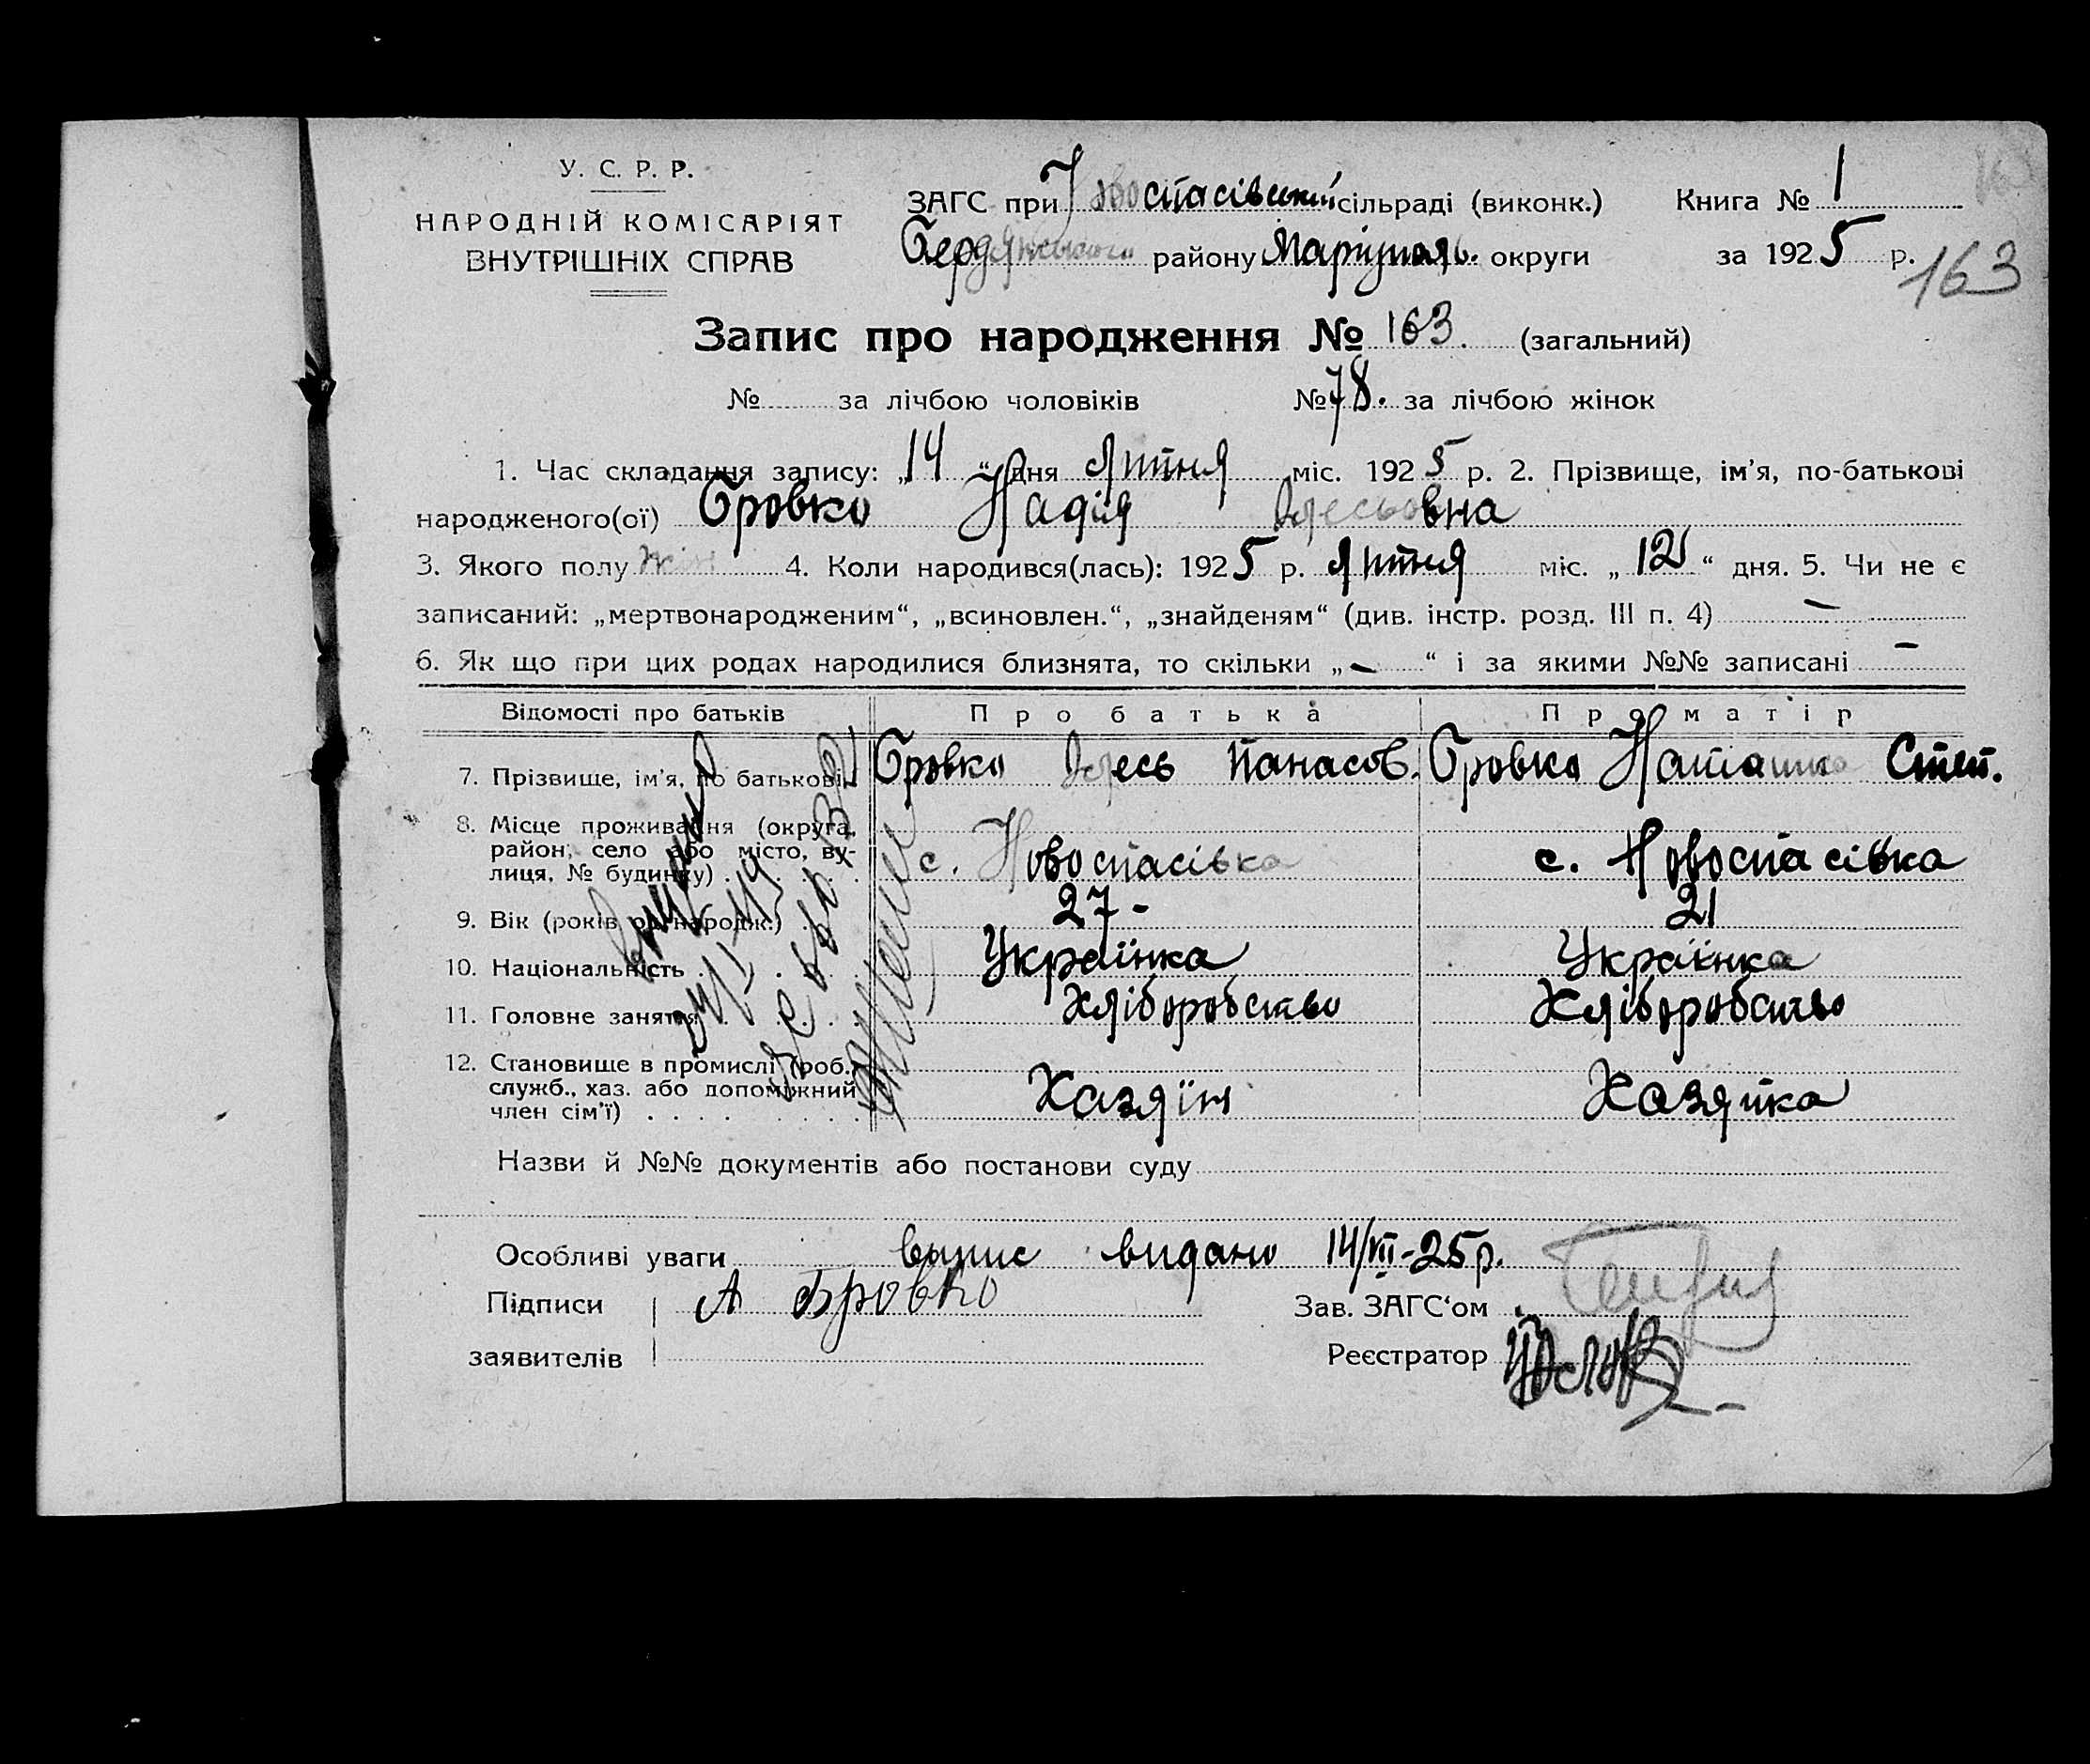 У. С. Р. Р.
НАРОДНІЙ КОМІСАРІЯТ
ВНУТРІШНІХ СПРАВ
ЗАГС при Новоспасівській сільраді (виконк.) Книга № 1
Бердянського району Маріупаль. округи за 1925 р.
163
Запис про народження № 163. (загальний)
№ за лічбою чоловіків № 78. за лічбою жінок
1. Час складання запису: „14“ дня липня міс. 1925 р. 2. Прізвище, ім'я, по-батькові
народженого(ої) Бровко Надія Олесьовна
3. Якого полу жін 4. Коли народився(лась): 1925 р. липня міс. „12“ дня. 5. Чи не є
записаний: „мертвонародженим“, „всиновлен.“, „знайденям“ (див. інстр. розд. III п. 4) —
6. Як що при цих родах народилися близнята, то скільки „—“ і за якими №№ записані —
Відомості про батьків Про батька Про матір
7. Прізвище, ім'я, по батькові Бровко Олесь Панасов. Бровко Наташка Степ.
8. Місце проживання (округа,
район, село або місто, ву-
лиця, № будинку) . . . . . с. Новоспасівка с. Новоспасівка
9. Вік (років од народж.) . . 27 - 21
10. Національність . . . . Українка Українка
11. Головне заняття . . . . Хліборобство Хліборобство
12. Становище в промислі (роб.,
служб., хаз. або допоміжний
член сім'ї) . . . . . . . Хазяїн Хазяйка
Назви й №№ документів або постанови суду
Особливі уваги выпис видано 14/VII-25р.
Підписи А Бровко Зав. ЗАГС‘ом
заявителів Реєстратор